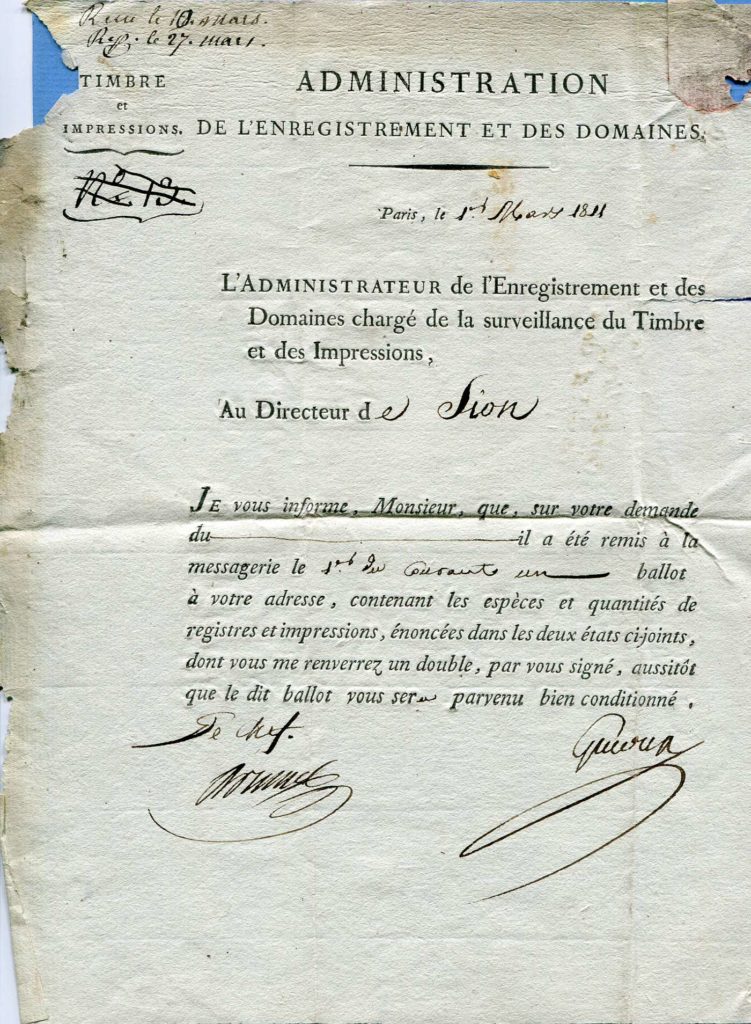 Reçu le 10. mars.
Rep. le 27. mars.
TIMBRE
et
IMPRESSIONS.
Nº 13.
ADMINISTRATION
DE L'ENREGISTREMENT ET DES DOMAINES.
Paris, le 1er Mars 1811
L'ADMINISTRATEUR de l'Enregistrement et des
Domaines chargé de la surveillance du Timbre
et des Impressions,
Au Directeur de Sion
JE vous informe, Monsieur, que, sur votre demande
du il a été remis à la
messagerie le 1er du courant un ballot
à votre adresse, contenant les espèces et quantités de
registres et impressions, énoncées dans les deux états ci-joints,
dont vous me renverrez un double, par vous signé, aussitôt
que le dit ballot vous sera parvenu bien conditionné.
Le chef.